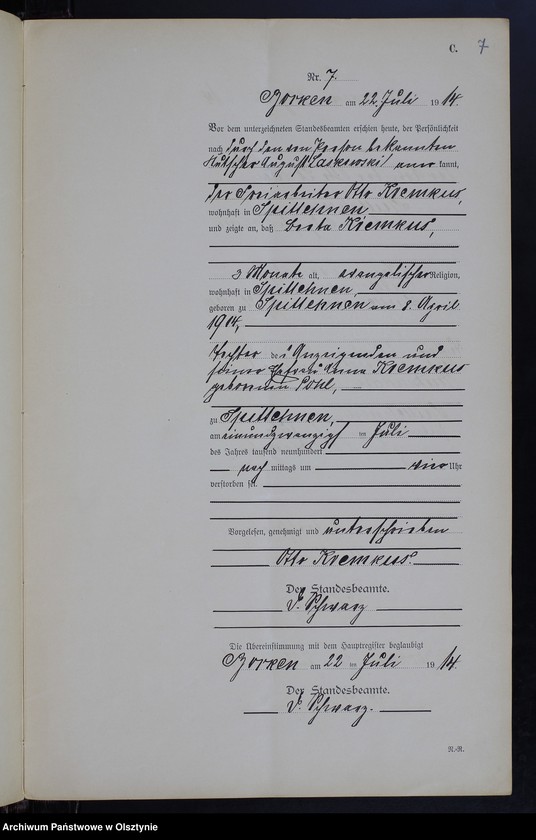 C. 7
Nr. 7.
Borken am 22. Juli 1914.
Vor dem unterzeichneten Standesbeamten erschien heute, der Persönlichkeit
nach durch den von Person bekannten
Kutscher August Laskowski anerkannt,
der Freiarbeiter Otto Kremkus,
wohnhaft in Spittehnen,
und zeigte an, daß Kremkus,
3 Monate alt, evangelischer Religion,
wohnhaft in Spittehnen,
geboren zu Spittehnen am 8. April
1914,
Tochter des Anzeigenden und
seiner Ehefrau Anna Kremkus
geborenen Pohl,
zu Spittehnen,
am einundzwanzigsten Juli
des Jahres tausend neunhundert
nach mittags um vier Uhr
verstorben sei.
Vorgelesen, genehmigt und unterschrieben
Otto Kremkus.
Der Standesbeamte.
Schwarz
Die Übereinstimmung mit dem Hauptregister beglaubigt
Borken am 22 ten Juli 1914.
Der Standesbeamte.
Schwarz.
N.-R.
Archiwum Państwowe w Olsztynie